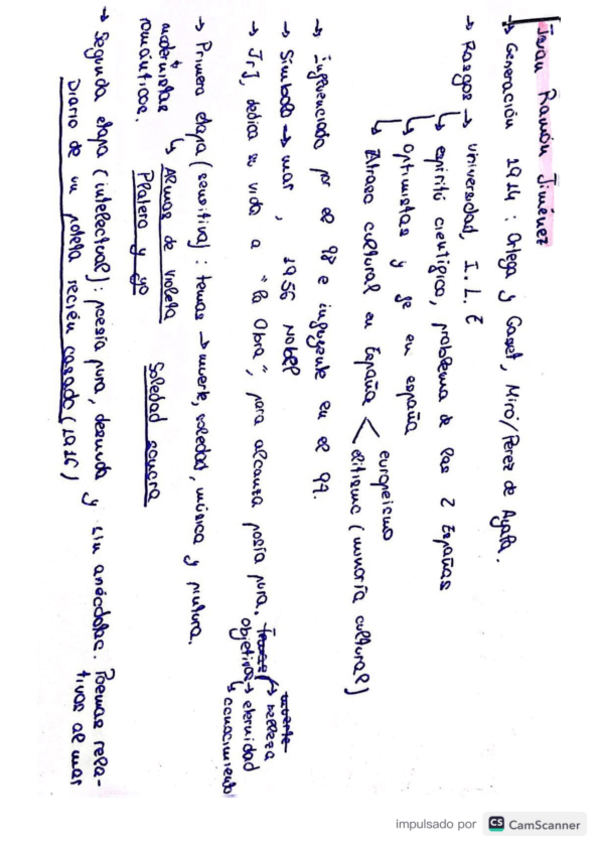 Juan Ramón Jiménez
→ Generación 1914: Ortega y Gasset, Miró/Pérez de Ayala.
→ Rasgos → universidad, I.L.E
↳ espiritú científico, problema de las 2 Españas
↳ Optimistas y fe en españa
↳ Atraso cultural en España < europeismo
elitismo (minoría cultural)
→ influenciado por el 98 e influyente en el 27.
→ Símbolo → mar, 1956 Nobel
→ JrJ, dedica su vida a "la Obra", para alcanza posía pura.
objetivos → belleza
→ eternidad
↳ conocimiento
→ Primera etapa (sensitiva): temas → muerte, soledad, música y pintura.
modernistas
románticos.
↳ Almas de violeta
Soledad sonora
Platero y yo
→ Segunda etapa (intelectual): poesía pura, desnuda y sin anécdotas. Poemas rela-
tivos al mar
Diario de un poeta recién casado (1916)
impulsado por CS CamScanner